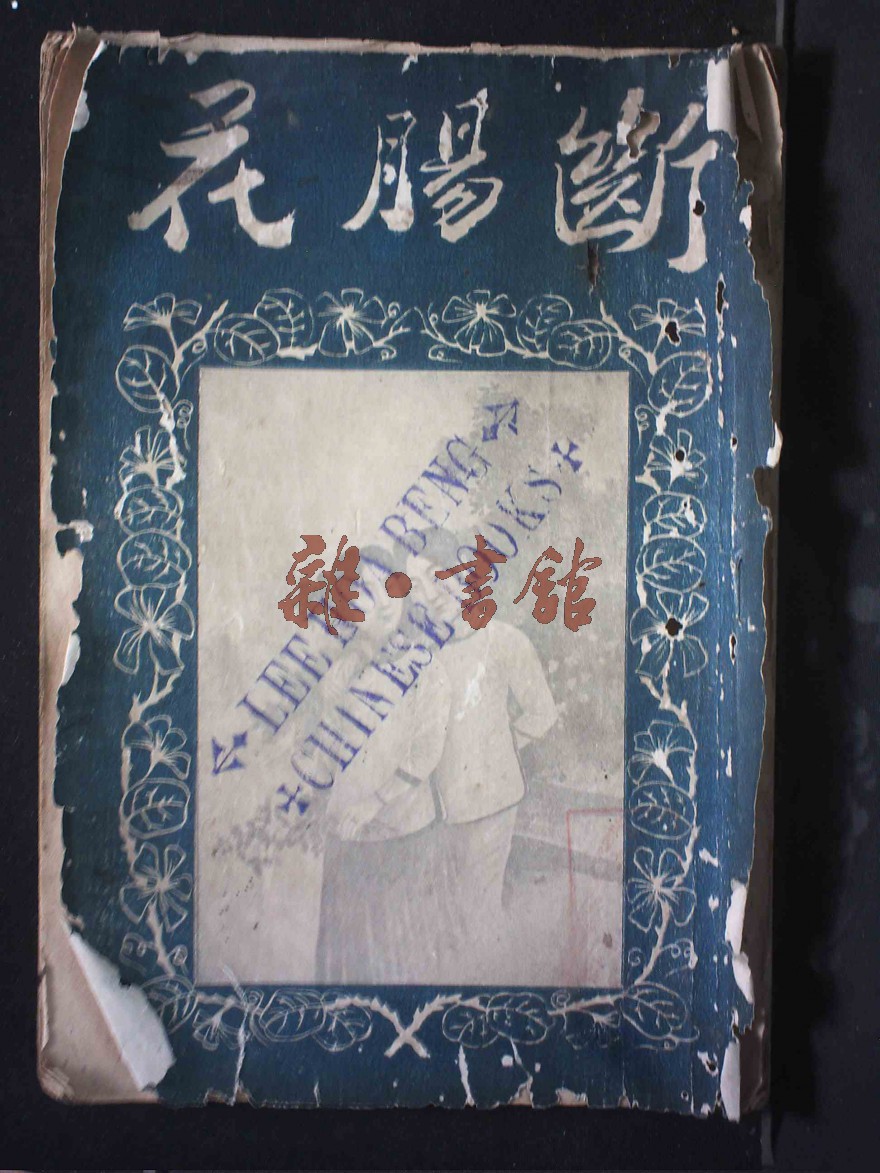 斷腸花
LEE KOA BENG
CHINESE BOOKS
雜·書館